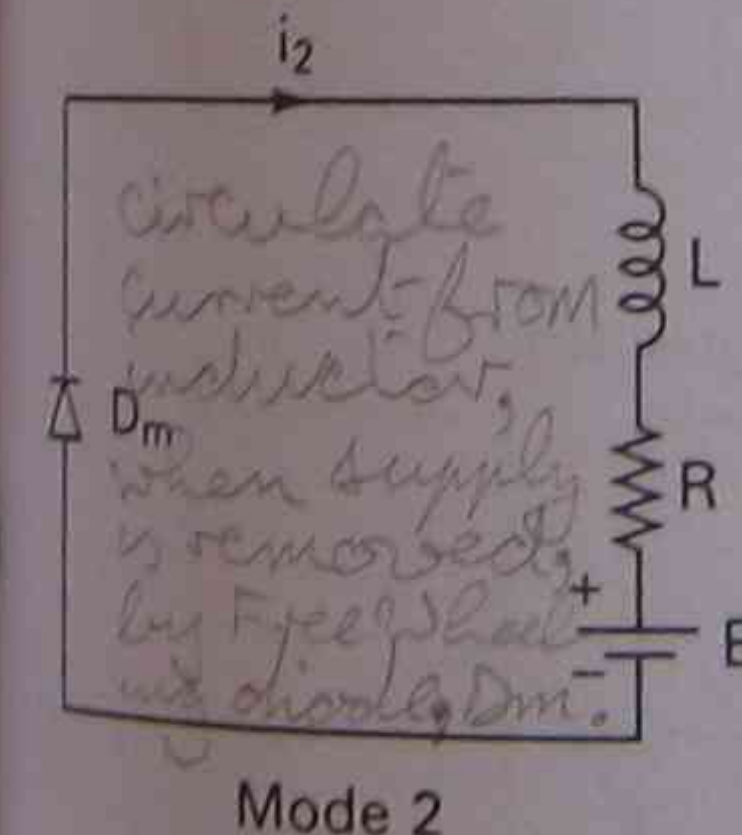 i₂
circulate
current from
inductor,
when supply
is removed,
by Freewheel
ing diode, Dm.
L
Dm
R
+
E
−
Mode 2